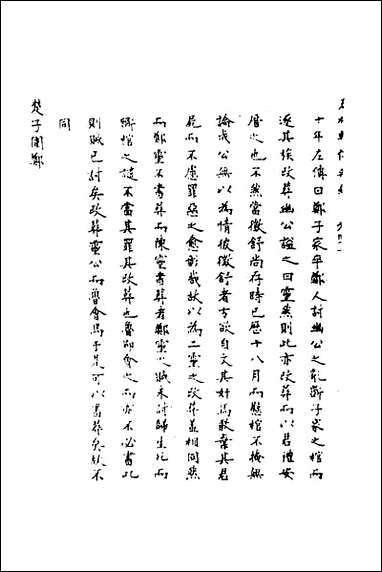 十年左傳曰鄭子家卒鄭人討幽公之亂斵子家之棺而
逐其族改葬幽公諡之曰靈然則此亦改葬而以君禮安
厝之也不然當徵舒尚存時已歷十八月而慭棺不掩無
論成公無以為情彼徵舒者方欲自文其奸焉敢棄其君
屍而不慮罪惡之愈彰哉故以為二靈之改葬並相同然
而鄭靈不書葬而陳靈書葬者鄭靈之賊未討歸生死而
斵棺之諡不當其罪其改葬也魯即會之而亦不必書此
則賊已討矣改葬靈公而魯會焉于是可以書葬矣故不
同
楚子圍鄭